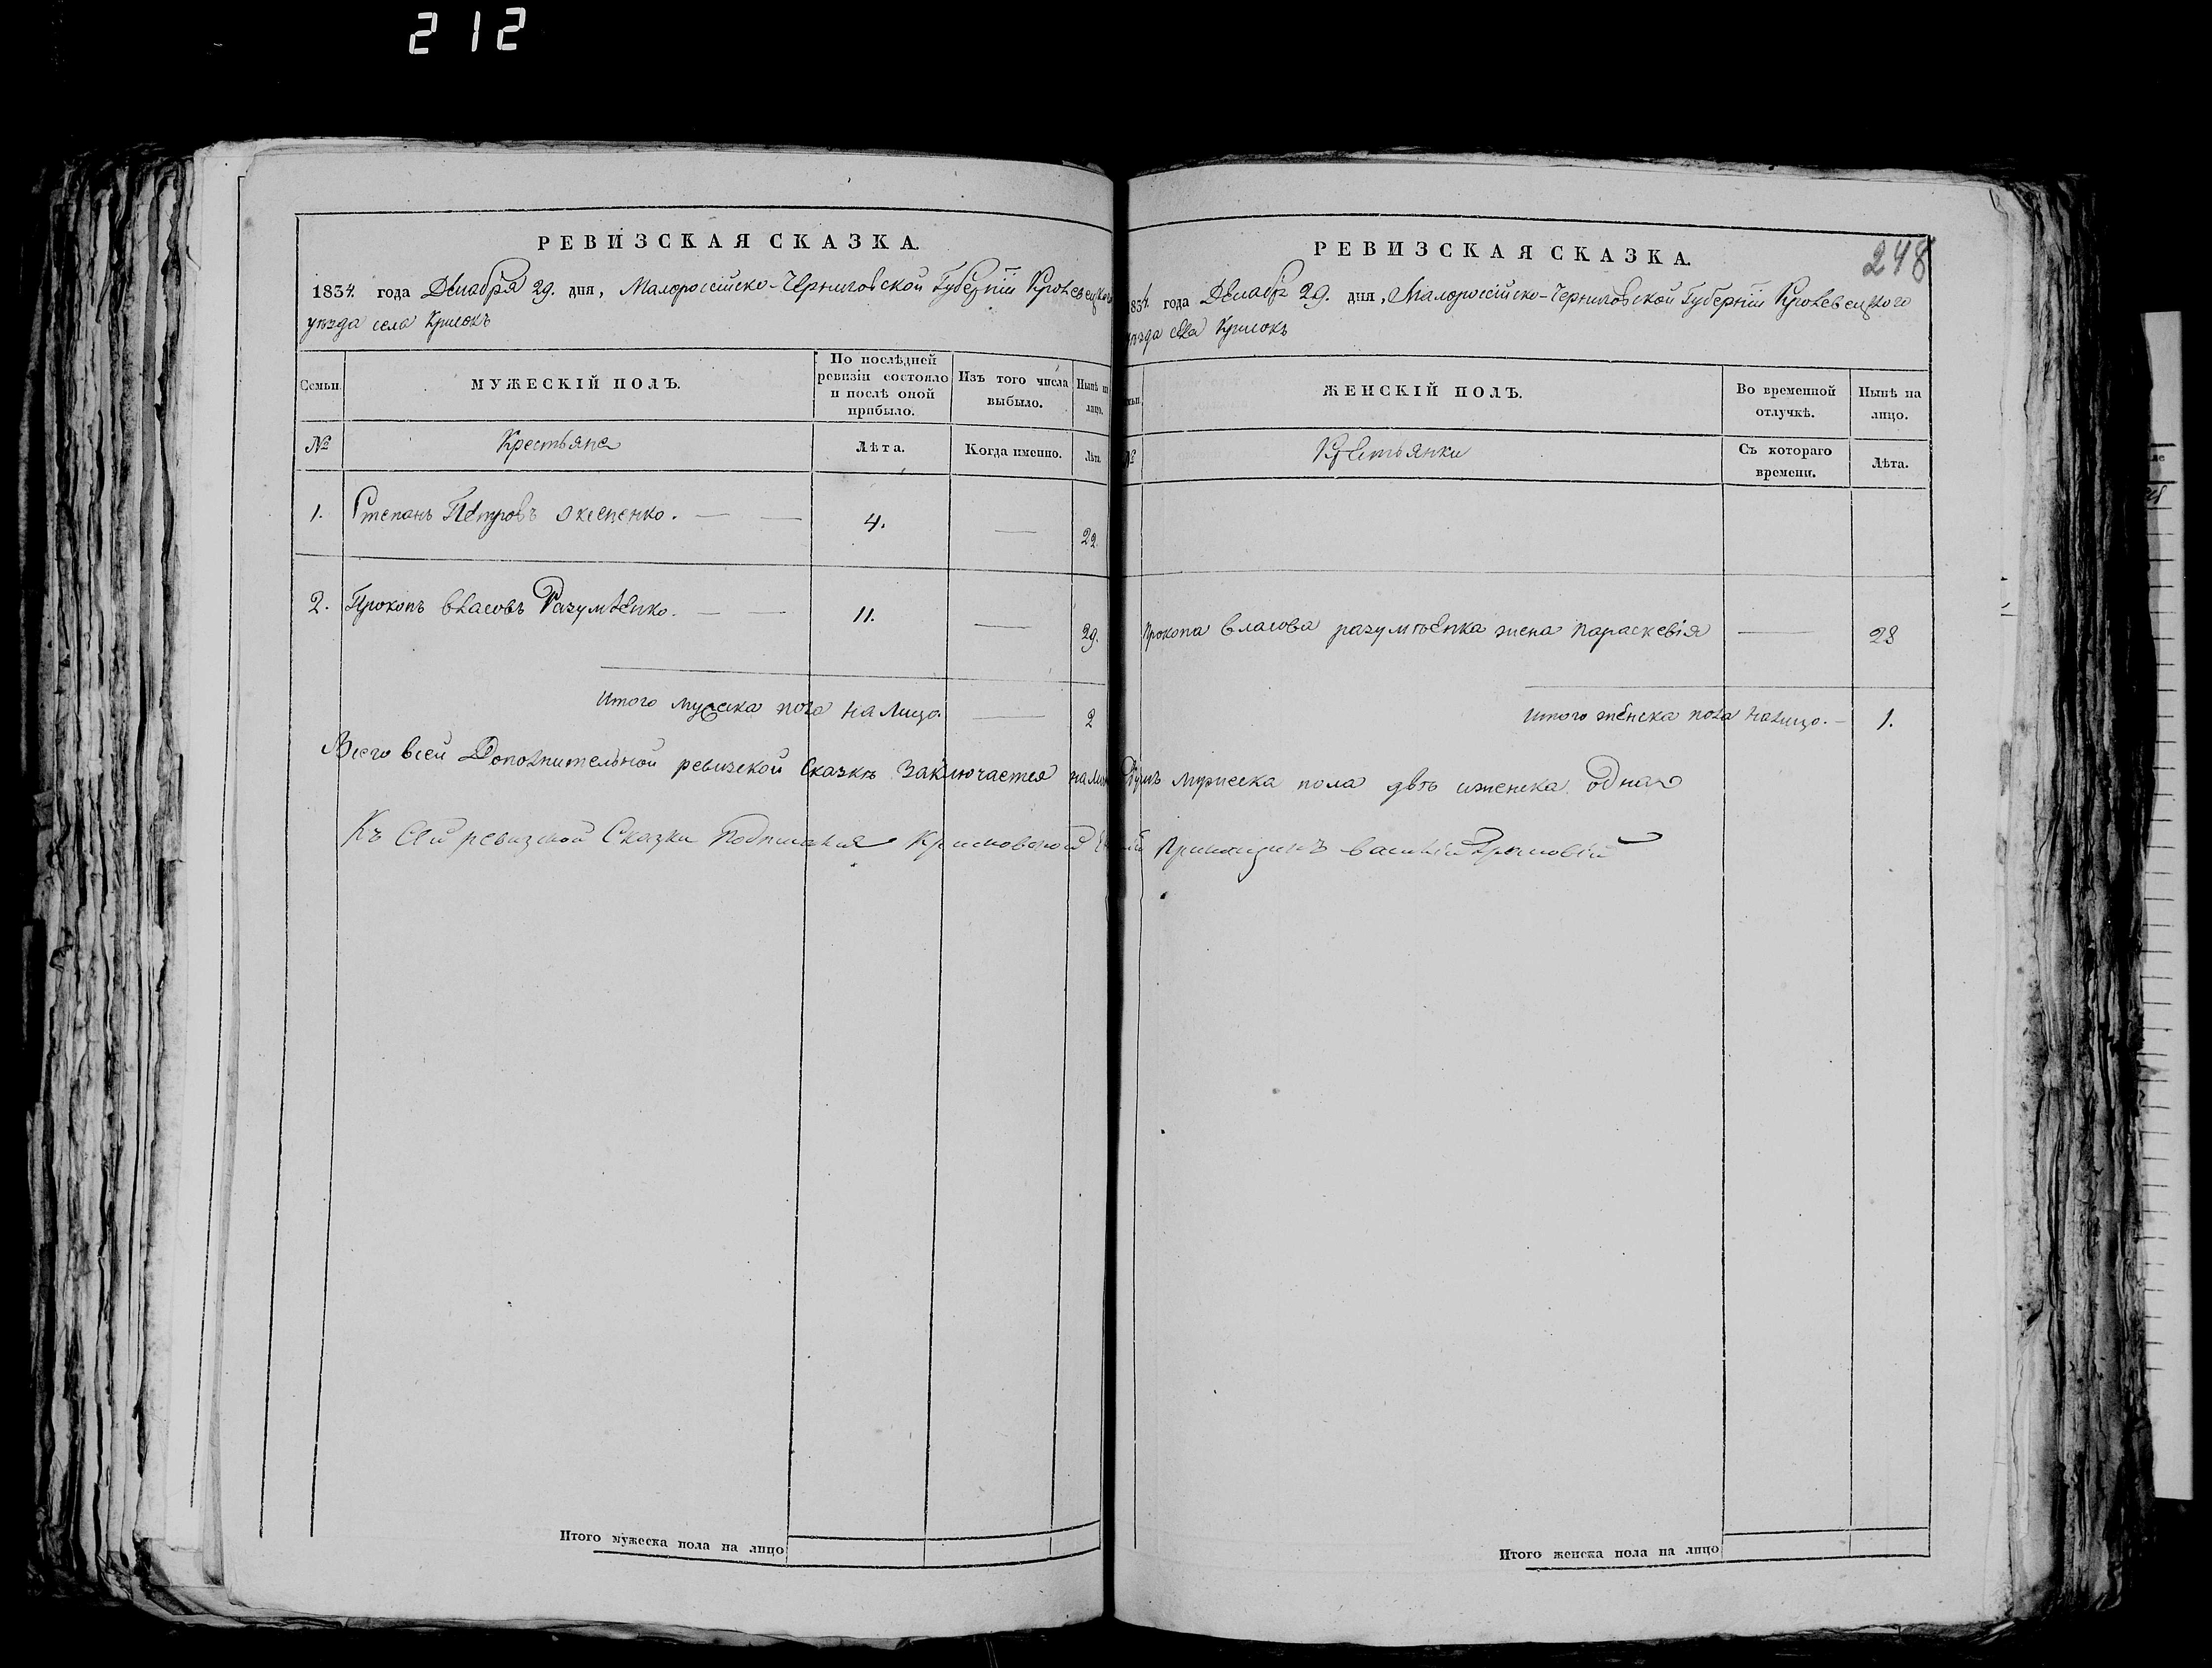 212
РЕВИЗСКАЯ СКАЗКА.
1834. года Декабря 29. дня, Малороссійско-Черниговской Губерніи Кролевецкого
уѣзда села
Семьи.
МУЖЕСКІЙ ПОЛЪ.
По послѣдней ревизіи состояло и послѣ оной прибыло.
Изъ того числа выбыло.
Нынѣ на лицо.
№
Крестьяне
Лѣта.
Когда именно.
Лѣта.
1. Степанъ Петровъ 4. — 22.
2. Прокопъ власовъ Разумѣенко. — 11. — 29.
Итого мужеска пола на лицо. — 2
Всего всей Дополнительной ревизской Сказкѣ заключается
Къ Сей ревизкой Сказки
Итого мужеска пола на лицо
248
РЕВИЗСКАЯ СКАЗКА.
1834. года Декабря 29. дня, Малороссійско-Черниговской Губерніи Кролевецкого
уѣзда села
ЖЕНСКІЙ ПОЛЪ.
Во временной отлучкѣ.
Нынѣ на лицо.
№
Крестьянки
Съ котораго времени.
Лѣта.
Прокопа власова разумѣенка жена параскевія — 28
Итого женска пола налицо. — 1.
Душъ мужеска пола двѣ иженска одна
василій
Итого женска пола на лицо